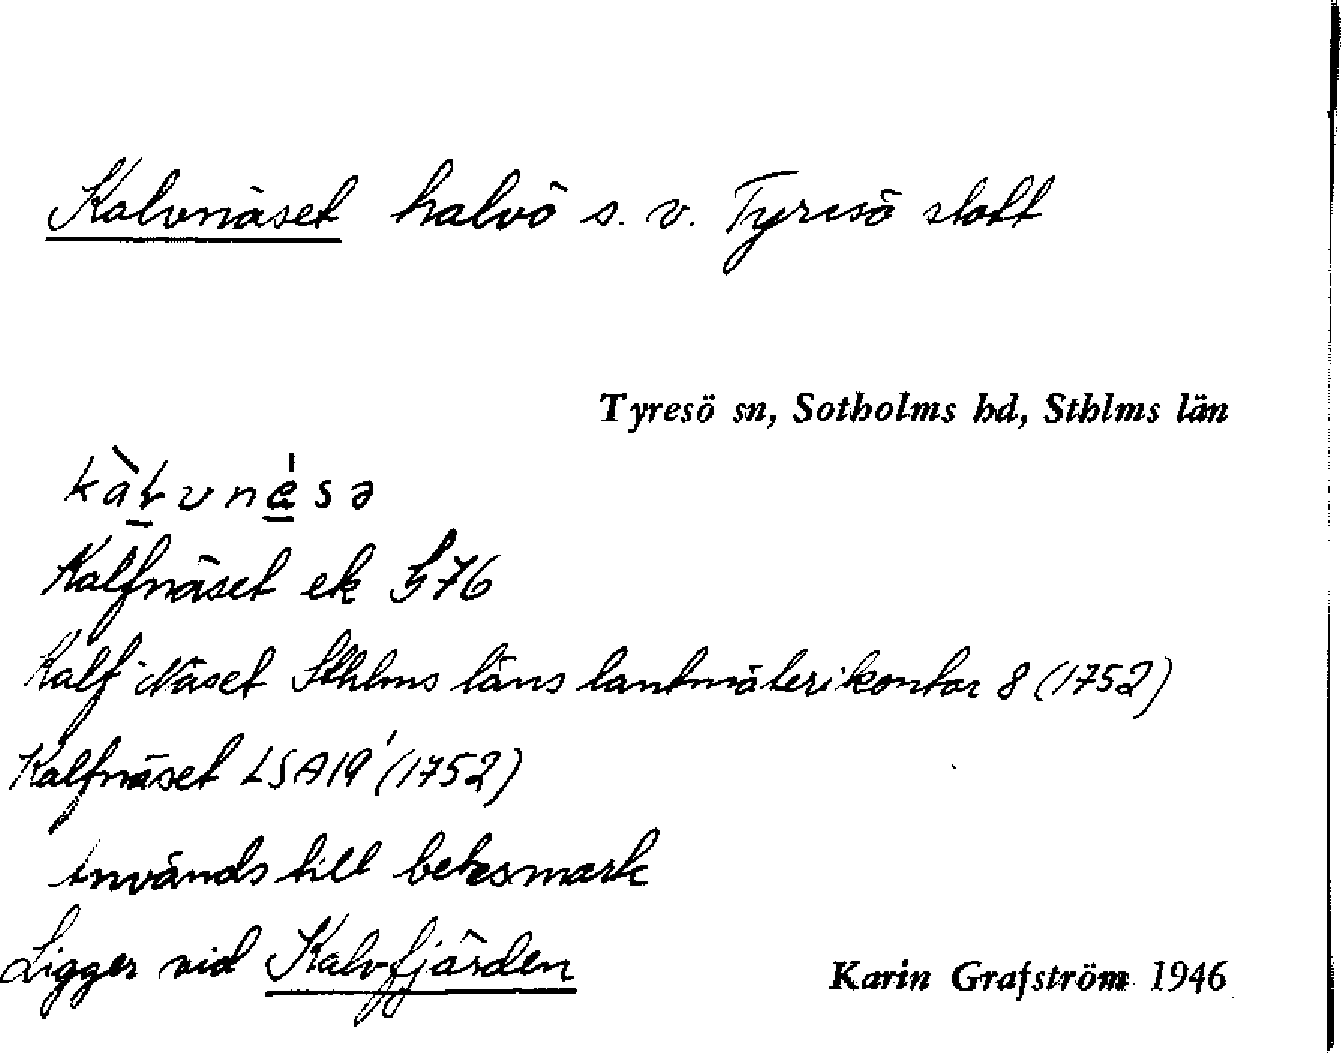 Kalvnäset halvö s. v. Tyresö slott
Tyresö sn, Sotholms hd, Sthlms län
Kalfnäset ek 576
Kalf Näset Sthlms läns lantmäterikontor 8 (1752)
Kalfnäset LSA 19 (1752)
Används till betesmark
Ligger vid Kalvfjärden
Karin Grafström 1946